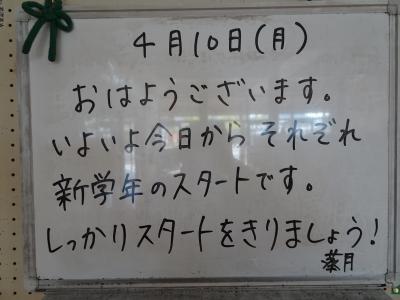 4月10日(月)
おはようございます。
いよいよ今日から それぞれ
新学年のスタートです。
しっかりスタートをきりましょう!